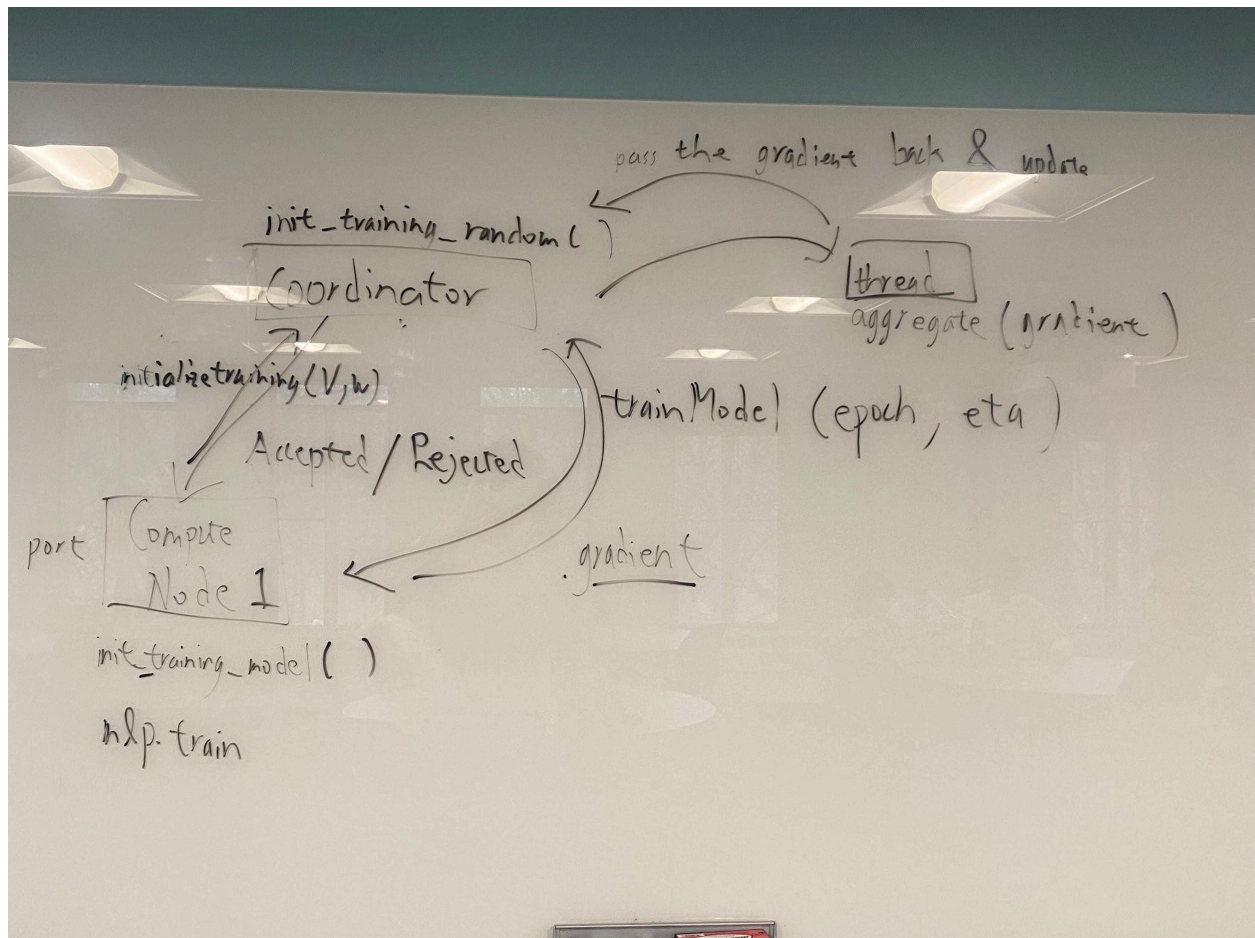 pass the gradient back & update
init_training_random( )
Coordinator
thread
aggregate (gradient)
initializetraining(V,W)
trainModel (epoch, eta)
Accepted/Rejected
port
Compute
Node 1
gradient
init_training_model( )
mlp.train